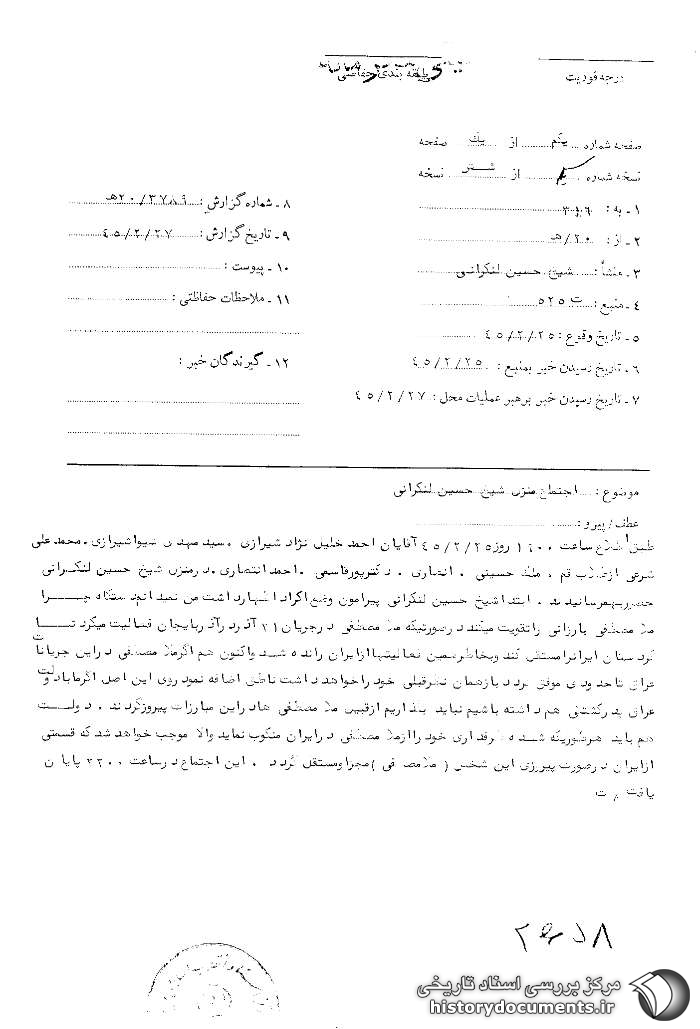 طبقه بندی حفاظتی
درجه فوریت
صفحه شماره یکم از یک صفحه
نسخه شماره یکم از شش نسخه
۱ - به : ۳۱۶
۲ - از : ۲۰/هـ
۳ - منشأ : شیخ حسین لنکرانی
۴ - منبع : ۵۲۵
۵ - تاریخ وقوع : ۴۵/۲/۲۵
۶ - تاریخ رسیدن خبر بمنبع : ۴۵/۲/۲۵
۷ - تاریخ رسیدن خبر برهبر عملیات محل : ۴۵/۲/۲۷
۸ - شماره گزارش : ۲۰/۳۷۸۹هـ
۹ - تاریخ گزارش : ۴۵/۲/۲۷
۱۰ - پیوست :
۱۱ - ملاحظات حفاظتی :
۱۲ - گیرندگان خبر :
موضوع : اجتماع منزل شیخ حسین لنکرانی
عطف / پیرو :
طبق اطلاع ساعت روز ۴۵/۲/۲۵ آقایان احمد خلیل نژاد شیرازی . سید مهدی ضیاشیرازی . محمدعلی
شرعی ازطلاب قم . ملک حسینی . انصاری . دکترپورقاسمی . احمد انتصاری . در منزل شیخ حسین لنکرانی
حضوربهمرسانیدند . ابتدا شیخ حسین لنکرانی پیرامون وضع اکراد اظهارداشت من نمیدانم دستگاه چرا
ملا مصطفی بارزانی راتقویت میکند درصورتیکه ملا مصطفی درجریان ۲۱ آذر درآذربایجان فعالیت میکرد تا
کردستان ایرانرامستقل کند وبخاطرهمین فعالیتها ازایران رانده شد واکنون هم اگرملا مصطفی دراین جریانات
عراق تاحدودی موفق گردد بازهمان نظرقبلی خود راخواهد داشت ناطق اضافه نمود روی این اصل اگرمابادولت
عراق پدرکشتگی هم داشته باشیم نباید بگذاریم ازقبیل ملا مصطفی هادراین مبارزات پیروزگردند . دولت
هم باید هرطوریکه شده طرفداری خود راازملا مصطفی درایران منکوب نماید والا موجب خواهد شد که قسمتی
ازایران درصورت پیروزی این شخص ( ملامصطفی ) مجزاومستقل گردد . این اجتماع درساعت ۲۲۰۰ پایان
یافت
مرکز بررسی اسناد تاریخی
historydocuments.ir